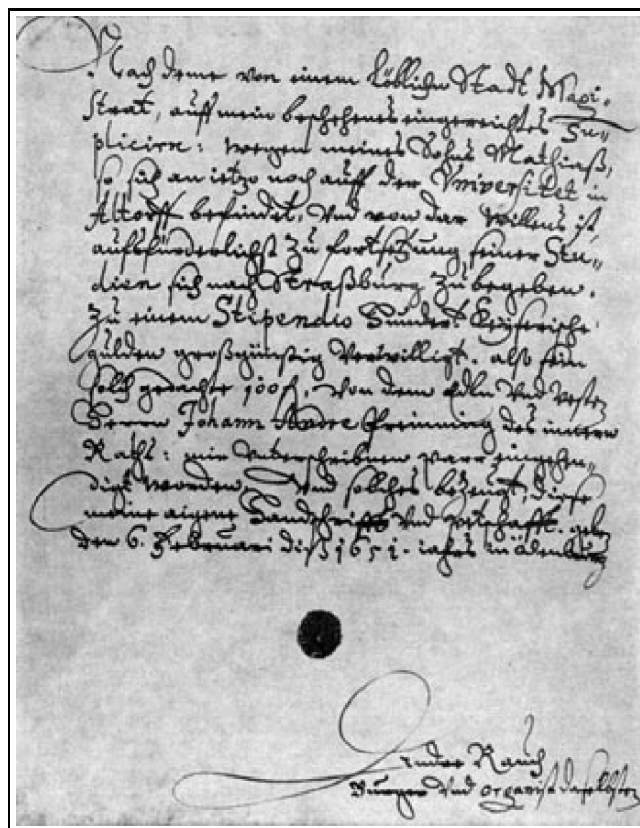 Nach deme von einem Löblichen Stadt Magi-
strat, auff mein beschehenes eingereichtes Su-
pliciren: wegen meines Sohns Mathiaß,
so sich an ietzo noch auff der Vniversitet in
Altorff befindet, Vnd von dar Willens ist
zu fortsetzung seiner Stu-
dien sich nach Straßburg zu begeben,
Zu einem Stipendio Hundert Keyserische
gulden großgünstig Verwilligt. also sein
solch gedachte 100 f. Von dem Edln Vnd Vesten
Herrn Johann Andre Preinning des innern
Raths: mir Vnterschribnen parr eingehen-
digt worden Vnd solches bezeugt, diese
meine aigene Handschrifft Vnd petschafft. geben
den 6. Februari diß 1651. iahrs in
Andre Rauch
Burger Vnd organist daselbsten